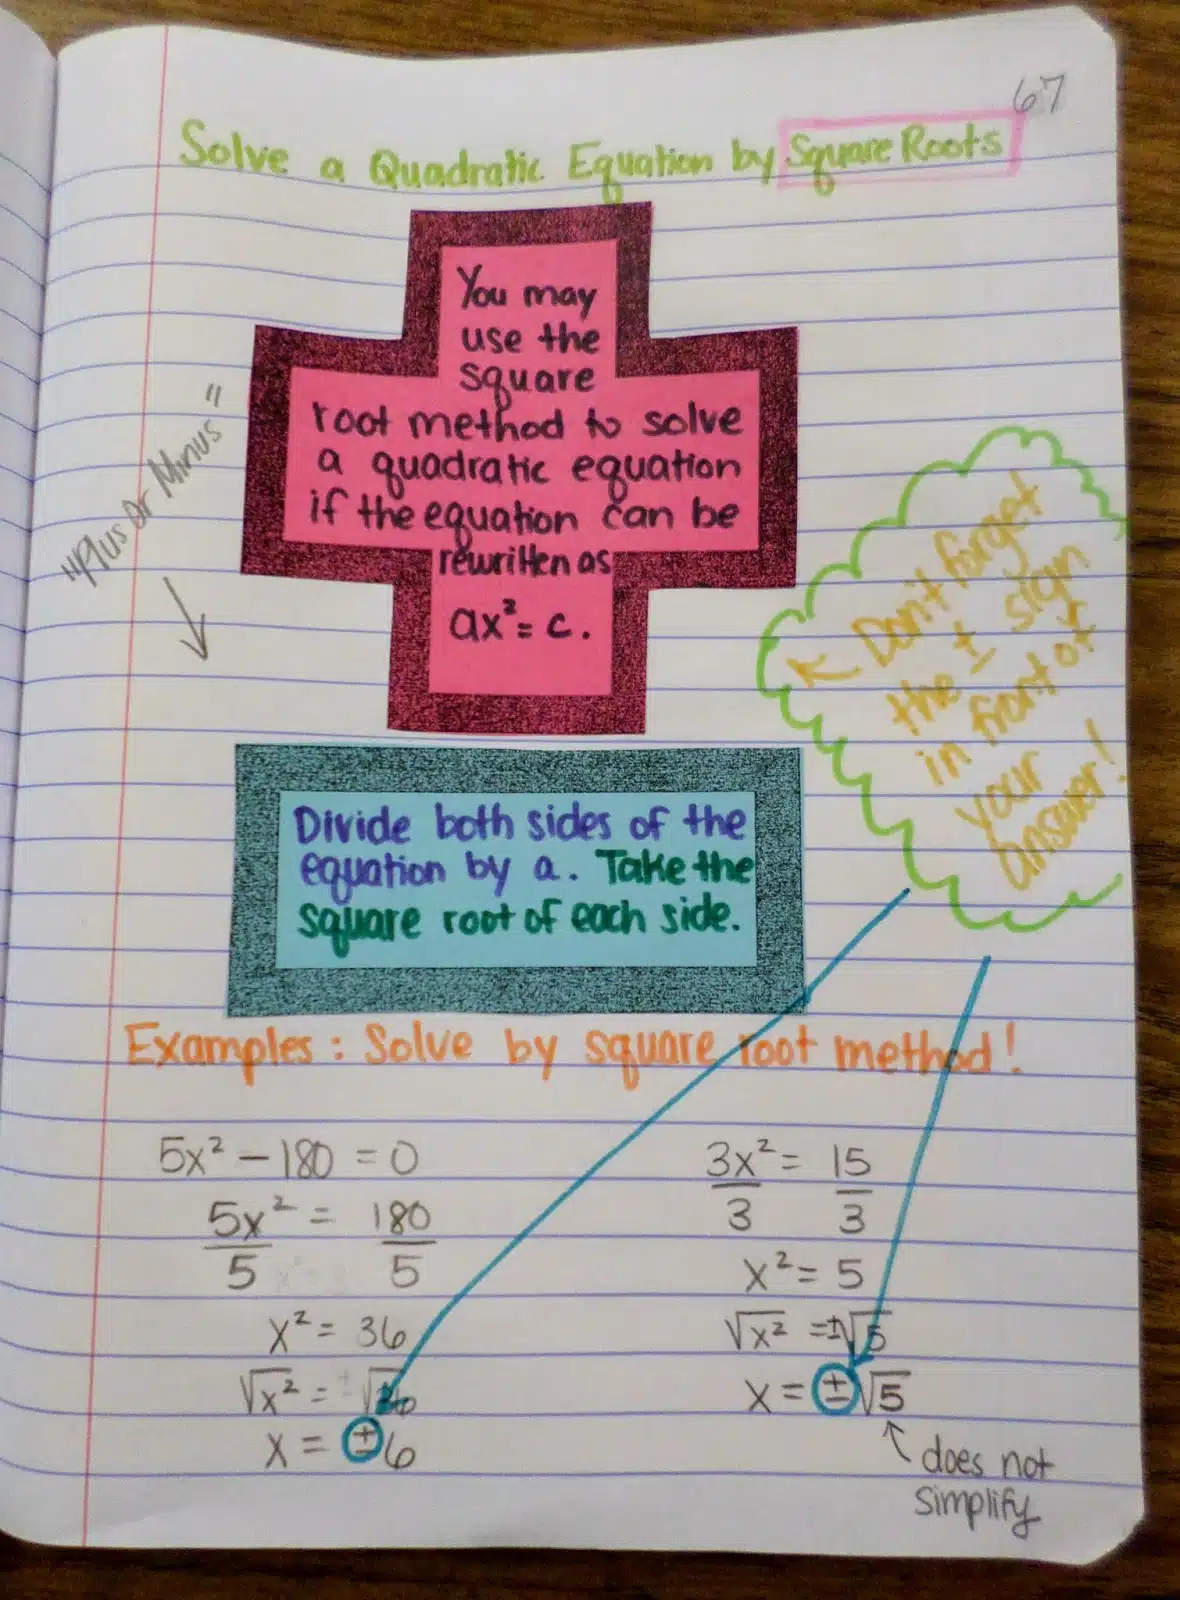 67
Solve a Quadratic Equation by Square Roots
You may
use the
square
root method to solve
a quadratic equation
if the equation can be
rewritten as
ax² = c.
"Plus Or Minus"
Don't forget
the ± sign
in front of
your
answer!
Divide both sides of the
equation by a. Take the
square root of each side.
Examples: Solve by square root method!
5x² - 180 = 0
5x² = 180
5 5
x² = 36
√x² = ±√36
x = ±6
3x² = 15
3 3
x² = 5
√x² = ±√5
x = ±√5
does not
simplify